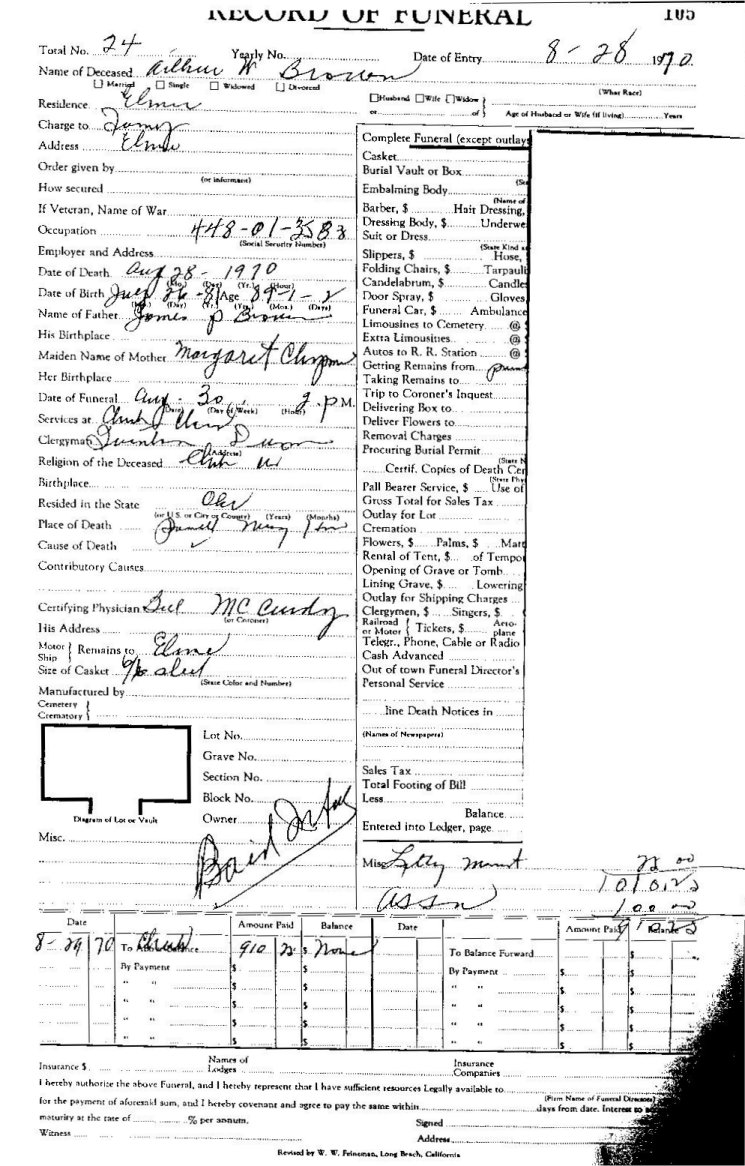 RECORD OF FUNERAL 105
Total No. 24 Yearly No. Date of Entry 8-28 1970
Name of Deceased Arthur W Brown
Married Single Widowed Divorced Husband Wife Widow (What Race)
Residence Elmer or of Age of Husband or Wife (if living) Years
Charge to
Address Elmer
Order given by (or informant)
How secured
If Veteran, Name of War
Occupation 448-01-3583 (Social Security Number)
Employer and Address
Date of Death Aug 28-1970 (Mo.) (Day) (Yr.) (Hour)
Date of Birth July 26-81 Age 89-1-2 (Day) (Yr.) (Yrs.) (Mos.) (Days)
Name of Father James P Brown
His Birthplace
Maiden Name of Mother Margaret
Her Birthplace
Date of Funeral Aug-30, 2 P.M. (Date) (Day of Week) (Hour)
Services at
Clergyman (Address)
Religion of the Deceased
Birthplace
Resided in the State (or U.S. or City or County) (Years) (Months)
Place of Death
Cause of Death
Contributory Causes
Certifying Physician Bill McCurdy (or Coroner)
His Address
Motor Ship Remains to Elmer
Size of Casket 6/6 (State Color and Number)
Manufactured by
Cemetery
Crematory
Lot No.
Grave No.
Section No.
Block No.
Diagram of Lot or Vault Owner
Misc.
Complete Funeral (except outlays
Casket
Burial Vault or Box
Embalming Body (Name of
Barber, $ Hair Dressing,
Dressing Body, $ Underwe
Suit or Dress (State Kind a
Slippers, $ Hose,
Folding Chairs, $ Tarpauli
Candelabrum, $ Candle
Door Spray, $ Gloves
Funeral Car, $ Ambulance
Limousines to Cemetery @ $
Extra Limousines @
Autos to R. R. Station @
Getting Remains from
Taking Remains to
Trip to Coroner's Inquest
Delivering Box to
Deliver Flowers to
Removal Charges
Procuring Burial Permit (State N
Certif. Copies of Death Cer (State Phy
Pall Bearer Service, $ Use of
Gross Total for Sales Tax
Outlay for Lot
Cremation
Flowers, $ Palms, $ Matt
Rental of Tent, $ of Tempo
Opening of Grave or Tomb
Lining Grave, $ Lowering
Outlay for Shipping Charges
Clergymen, $ Singers, $
Railroad or Motor Tickets, $ Aero-plane
Telegr., Phone, Cable or Radio
Cash Advanced
Out of town Funeral Director's
Personal Service
line Death Notices in
(Names of Newspapers)
Sales Tax
Total Footing of Bill
Less
Balance
Entered into Ledger, page
Misc.
Assn
Date Amount Paid Balance Date Amount Paid Balance
8-29 70 To Balance 910 22 $ None To Balance Forward $
By Payment $ $ By Payment $ $
" " $ $ " " $ $
" " $ $ " " $ $
" " $ $ " " $ $
" " $ $ " " $ $
Insurance $ Names of Lodges Insurance Companies
I hereby authorize the above Funeral, and I hereby represent that I have sufficient resources Legally available to (Firm Name of Funeral Directors)
for the payment of aforesaid sum, and I hereby covenant and agree to pay the same within days from date. Interest to
maturity at the rate of % per annum. Signed
Witness Address
Revised by W. W. Feineman, Long Beach, California